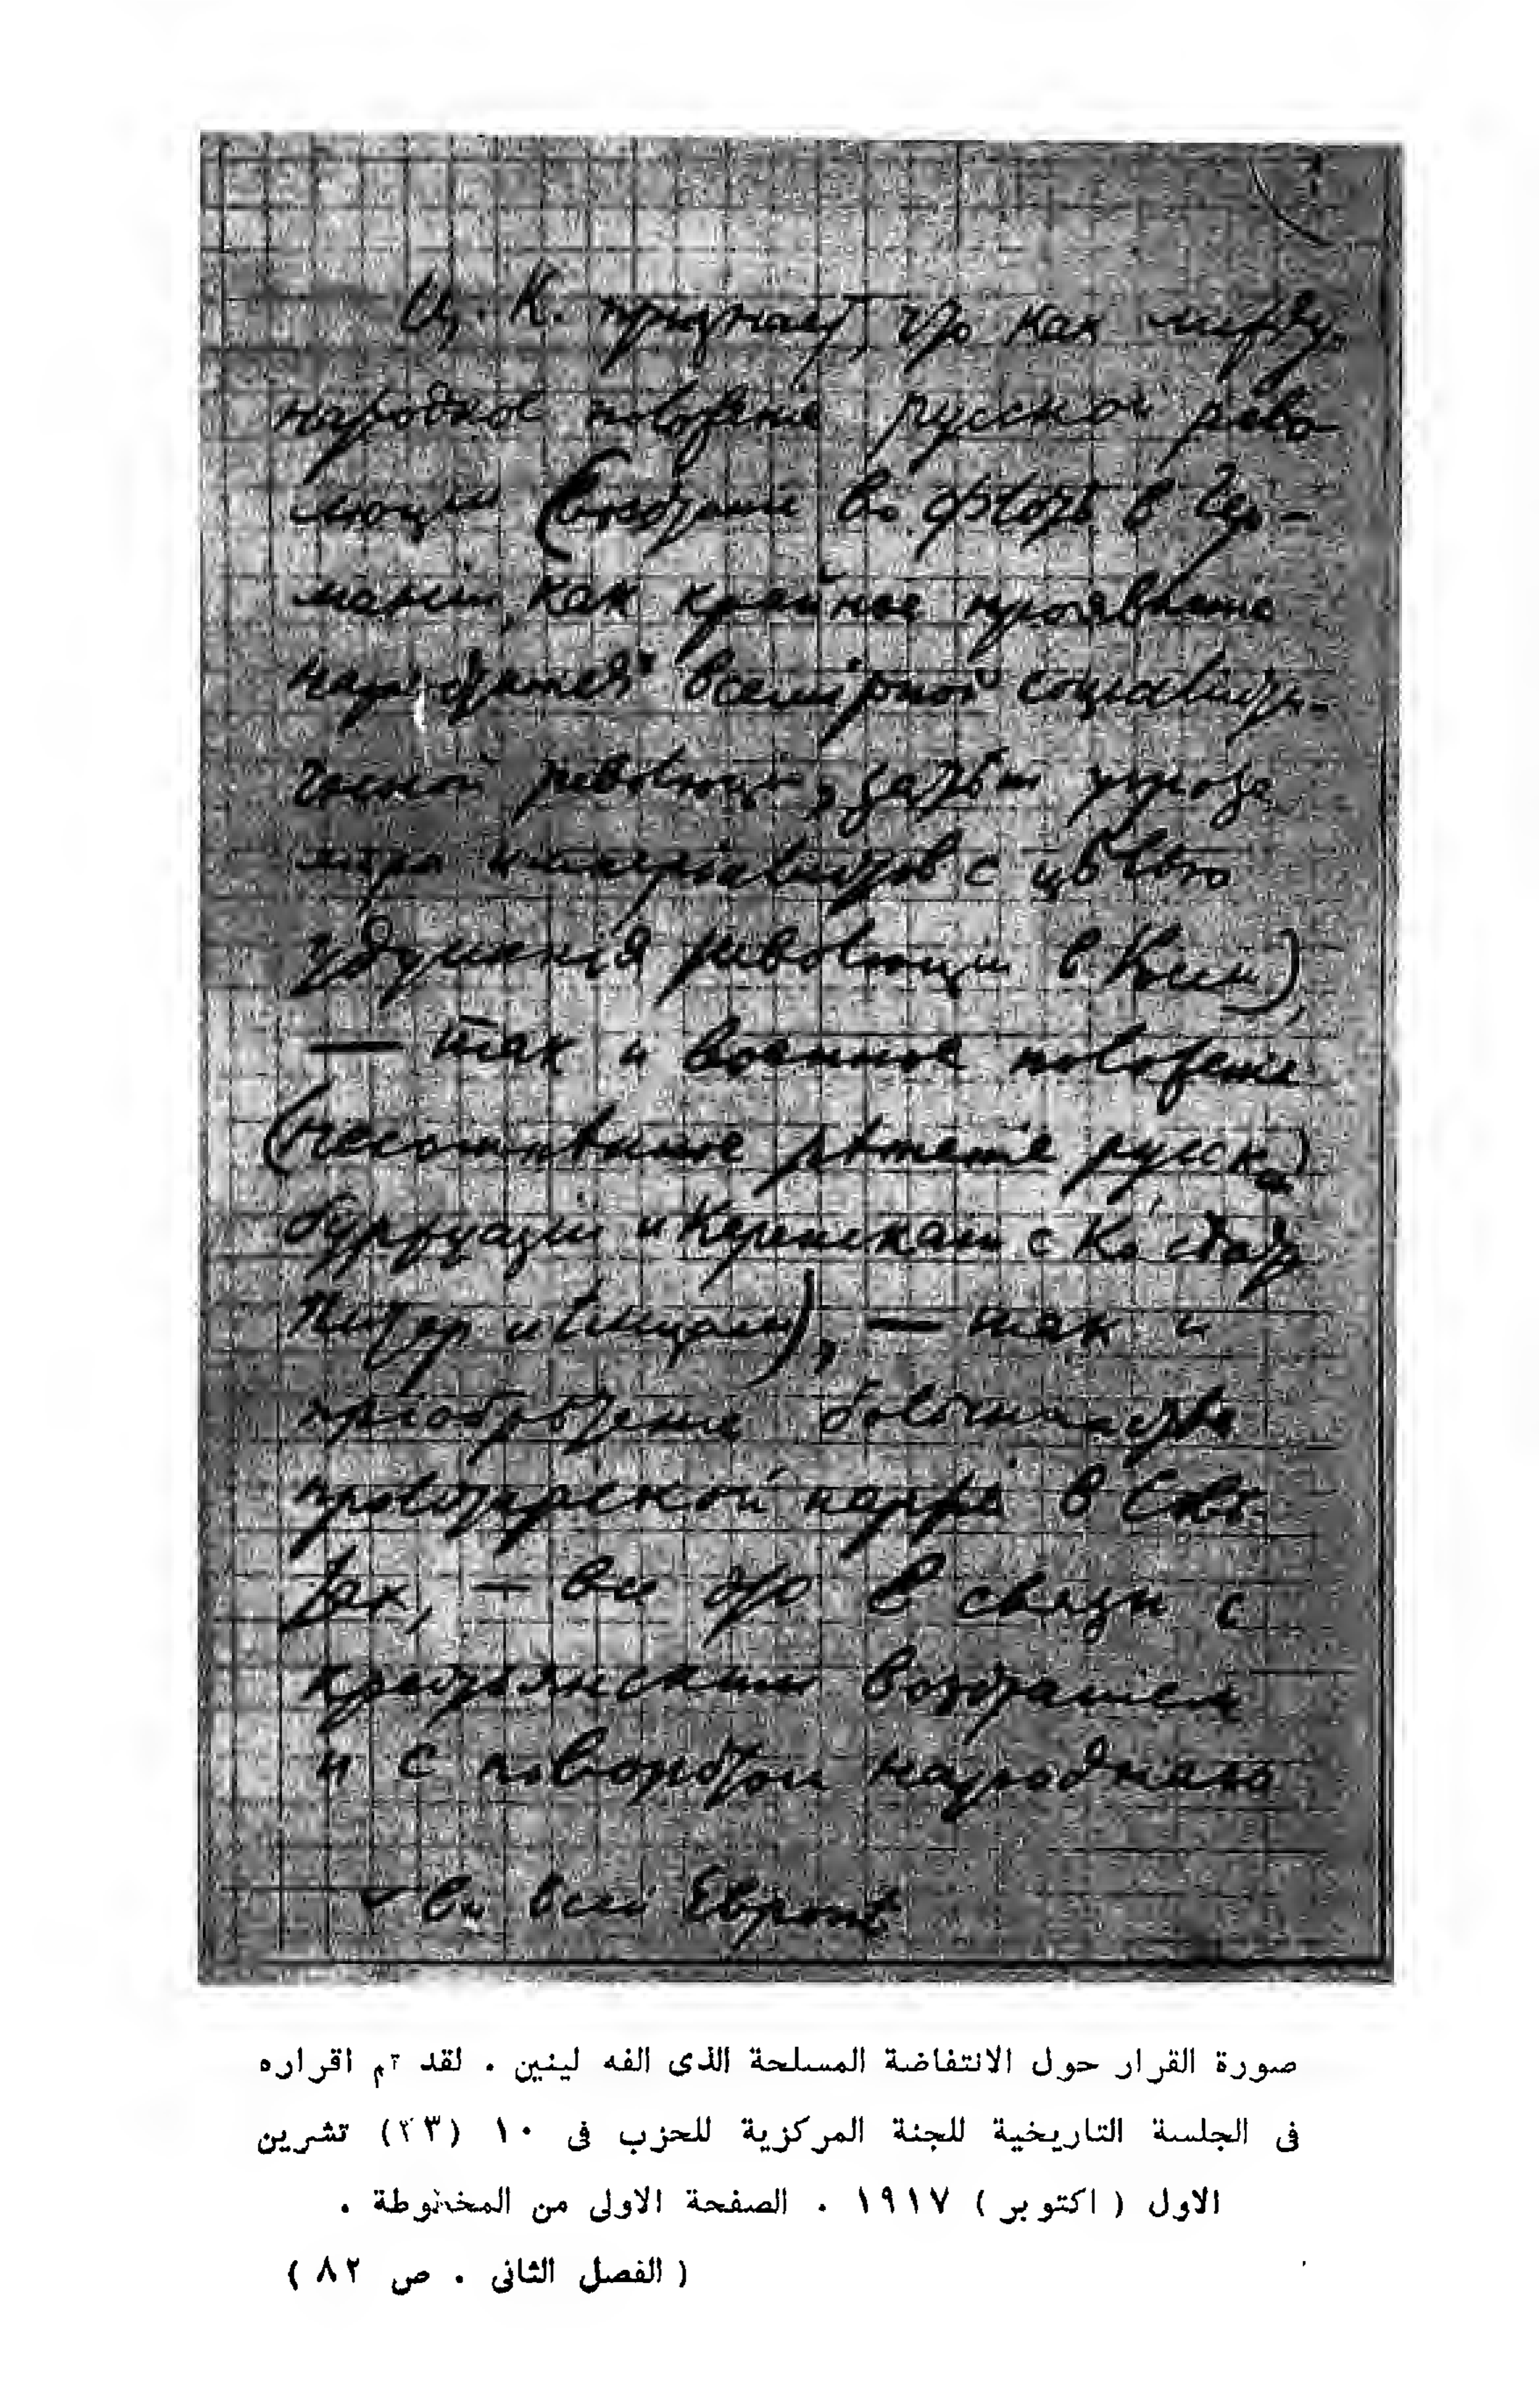 Ц. К. признает, что как между-
народное положеніе русской рево-
люціи (возстаніе во флотѣ в Гер-
маніи, как крайнее проявленіе
наростанія ѵ всемірной соціалисти-
ческой революціи, затѣм угроза
мира имперіалистов с цѣлью
удушенія революціи в Россіи),
— так и военное положеніе
(несомнѣнное рѣшеніе русской
буржуазіи и Керенскаго с Ко сдать
Питер нѣмцам), — так и
пріобрѣтеніе большинства
пролетарской партіей в Совѣ-
тах, — все это в связи с
крестьянским возстанием
и с поворотом народнаго
ѵ во всей Европѣ
صورة القرار حول الانتفاضة المسلحة الذى الفه لينين . لقد تم اقراره
فى الجلسة التاريخية للجنة المركزية للحزب فى ١٠ (٢٣) تشرين
الاول ( اكتوبر ) ١٩١٧ . الصفحة الاولى من المخطوطة .
( الفصل الثانى . ص ٨٢ )